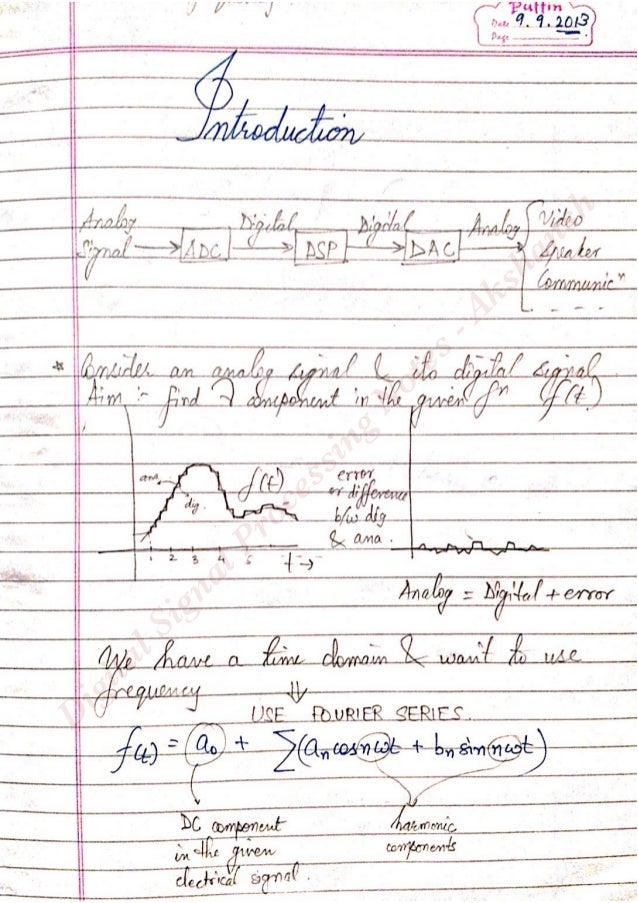 Puffin
Date 9.9.2013
Page
Introduction
Analog Signal → ADC Digital → DSP Digital → DAC Analog → Video
Speaker
Communicⁿ
- - - -
* Consider an analog signal & its digital signal
Aim :- find λ component in the given fⁿ f(t)
ana
dig.
f(t)
1 2 3 4 5 t →
error
or difference
b/w dig
& ana.
Analog = Digital + error
We have a time domain & want to use
frequency ⇓
USE FOURIER SERIES.
f(t) = a₀ + ∑(aₙcosnωt + bₙsinnωt)
DC component
in the given
electrical signal.
harmonic
components
Digital Signal Processing Notes - Akshansh